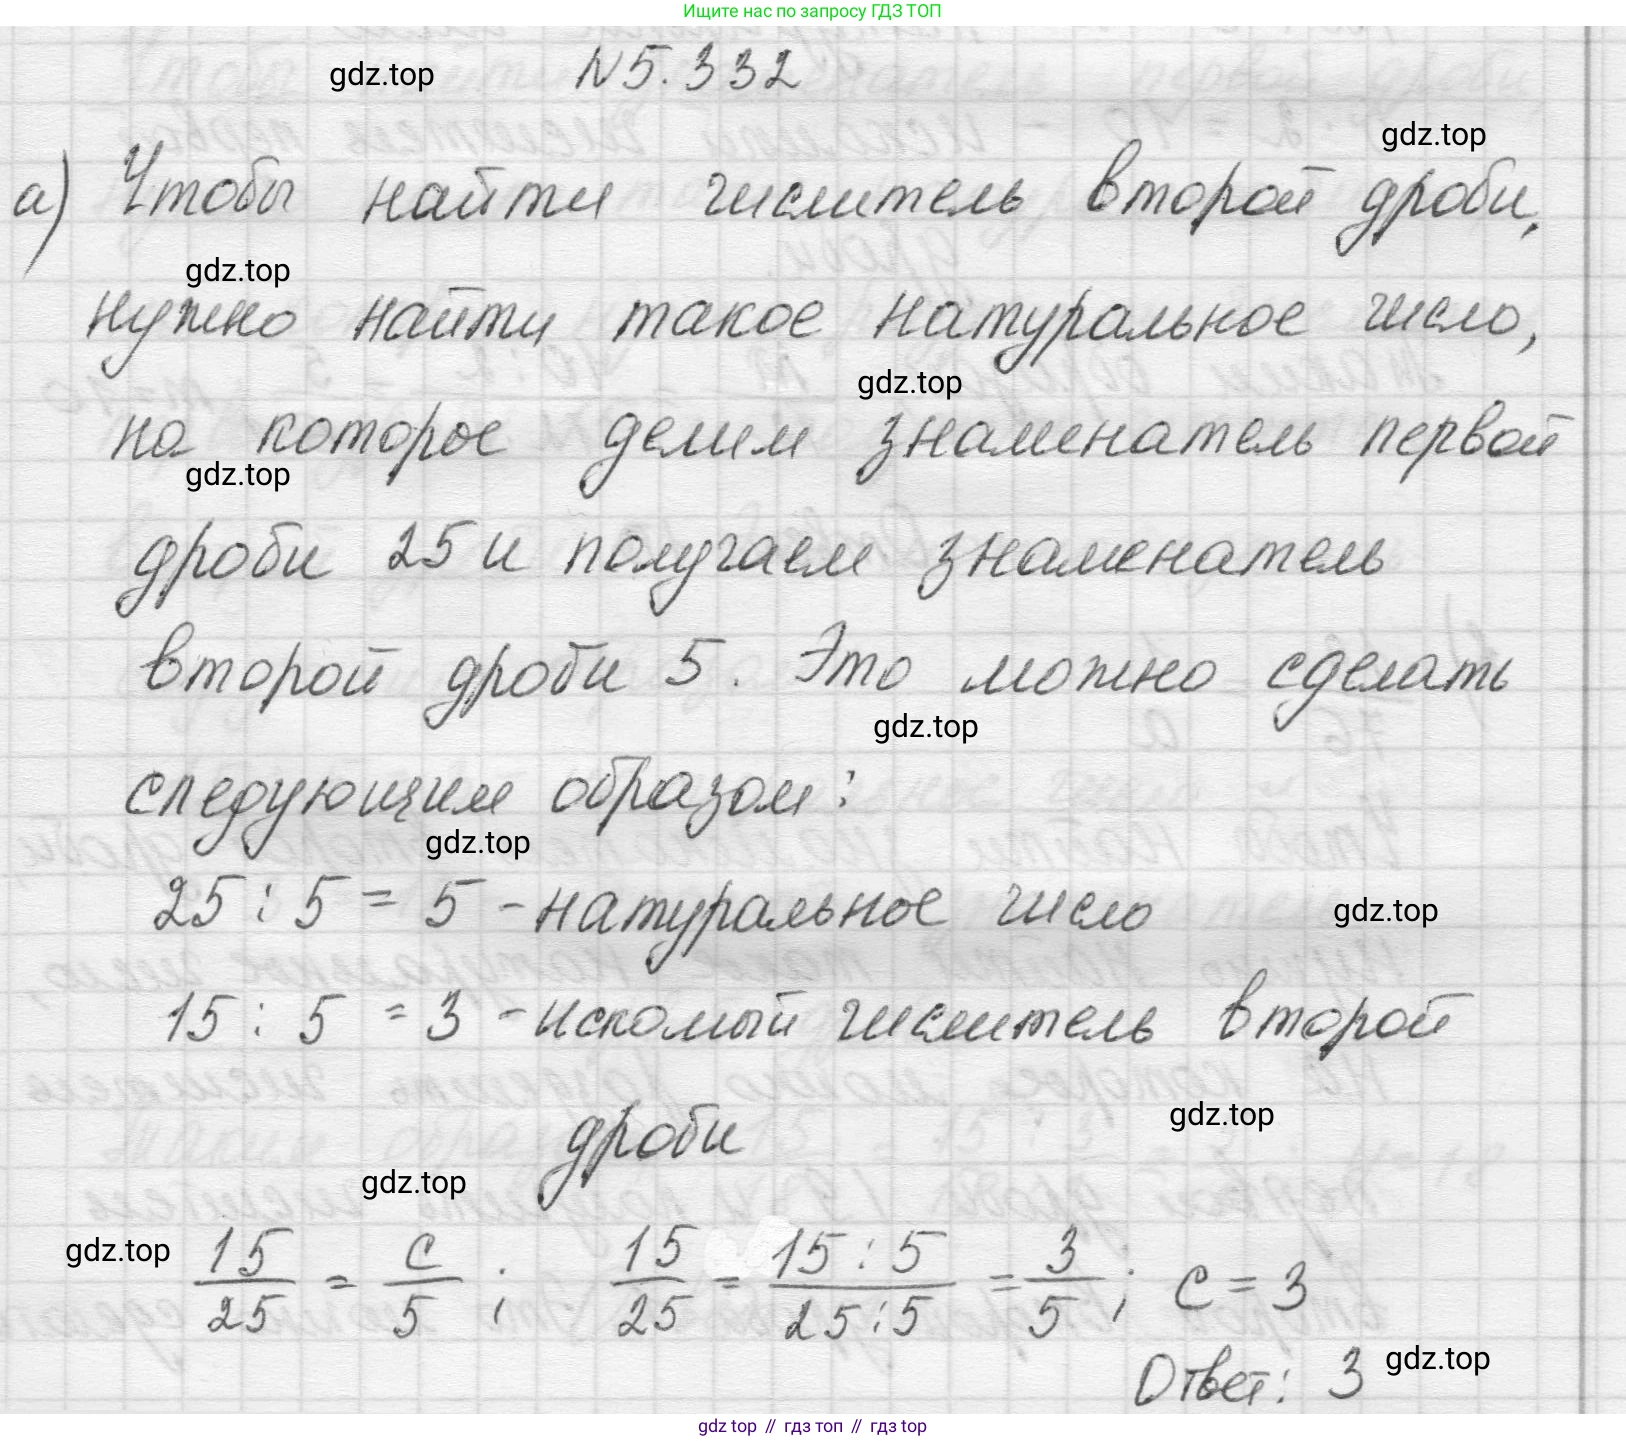 Ищите нас по запросу ГДЗ ТОП
gdz.top N5.332
gdz.top
а) Чтобы найти числитель второй дроби,
gdz.top
нужно найти такое натуральное число,
gdz.top
на которое делим знаменатель первой
gdz.top
дроби 25 и получаем знаменатель
второй дроби 5. Это можно сделать
gdz.top
следующим образом:
gdz.top
25 : 5 = 5 - натуральное число gdz.top
15 : 5 = 3 - искомый числитель второй
gdz.top
дроби
gdz.top
gdz.top 15/25 = c/5 ; 15/25 = 15:5/25:5 = 3/5 ; c = 3
Ответ: 3 gdz.top
gdz top // гдз топ // gdz top